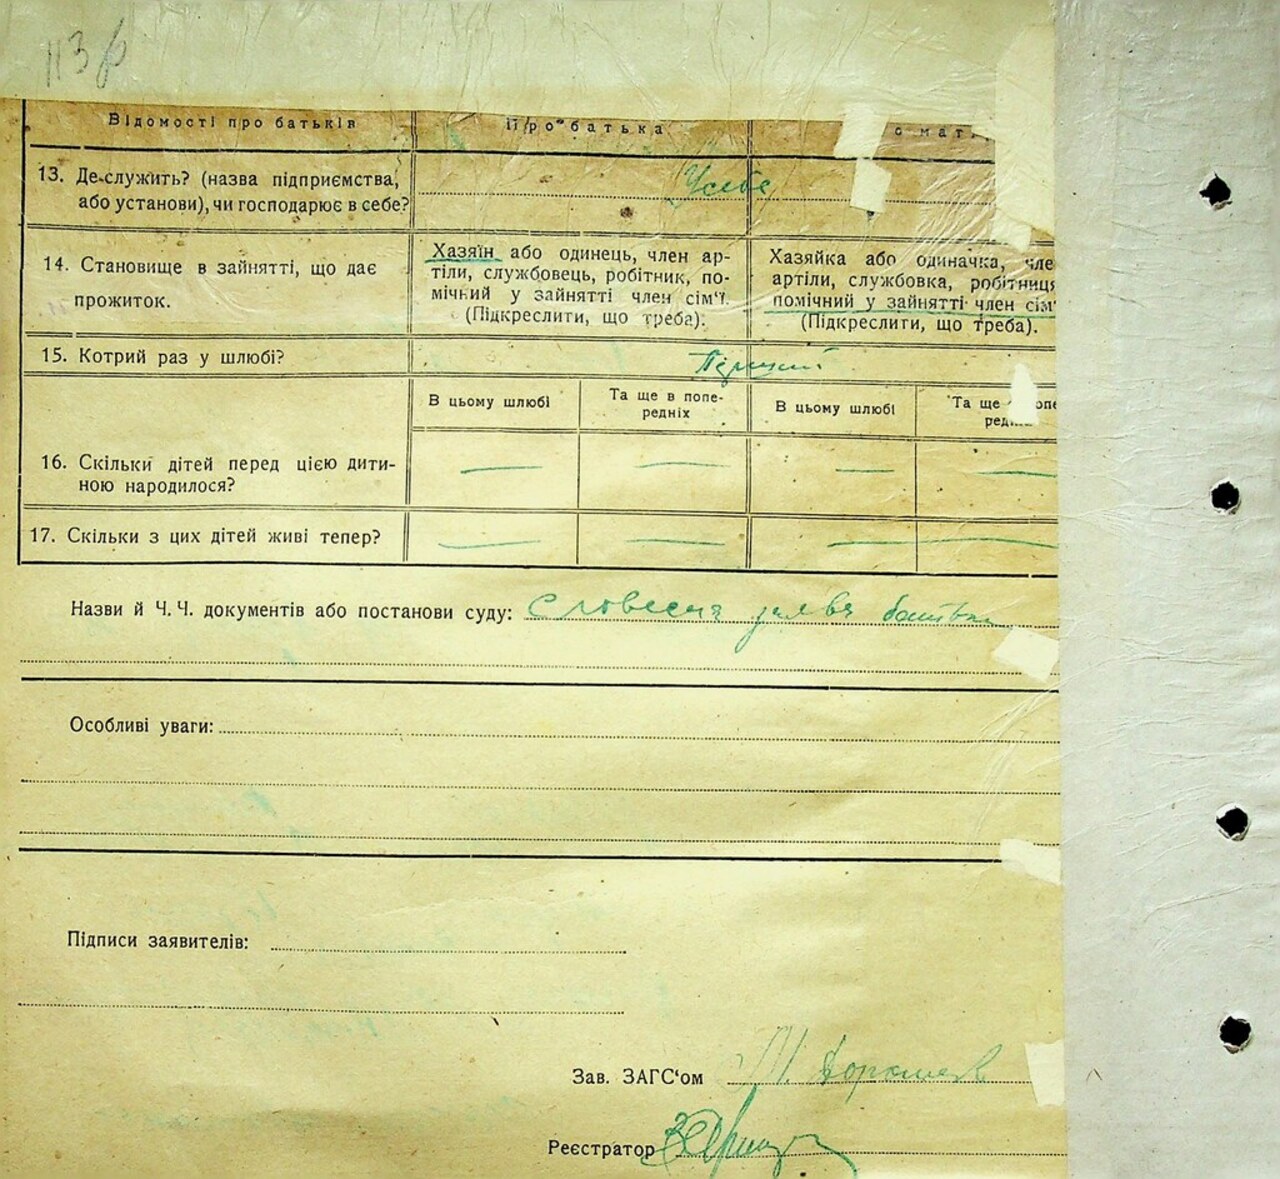 113б
Відомості про батьків Про батька о мат
13. Де служить? (назва підприємства,
або установи), чи господарює в себе?
У себе
14. Становище в зайнятті, що дає
прожиток.
Хазяїн або одинець, член ар-
тіли, службовець, робітник, по-
мічний у зайнятті член сім'ї.
(Підкреслити, що треба).
Хазяйка або одиначка, чле
артіли, службовка, робітниця
помічний у зайнятті член сім'
(Підкреслити, що треба).
15. Котрий раз у шлюбі?
В цьому шлюбі
Та ще в попе-
редніх
В цьому шлюбі
Та ще
16. Скільки дітей перед цією дити-
ною народилося?
17. Скільки з цих дітей живі тепер?
Назви й Ч. Ч. документів або постанови суду: Словесна заява батька
Особливі уваги:
Підписи заявителів:
Зав. ЗАГС'ом
Реєстратор